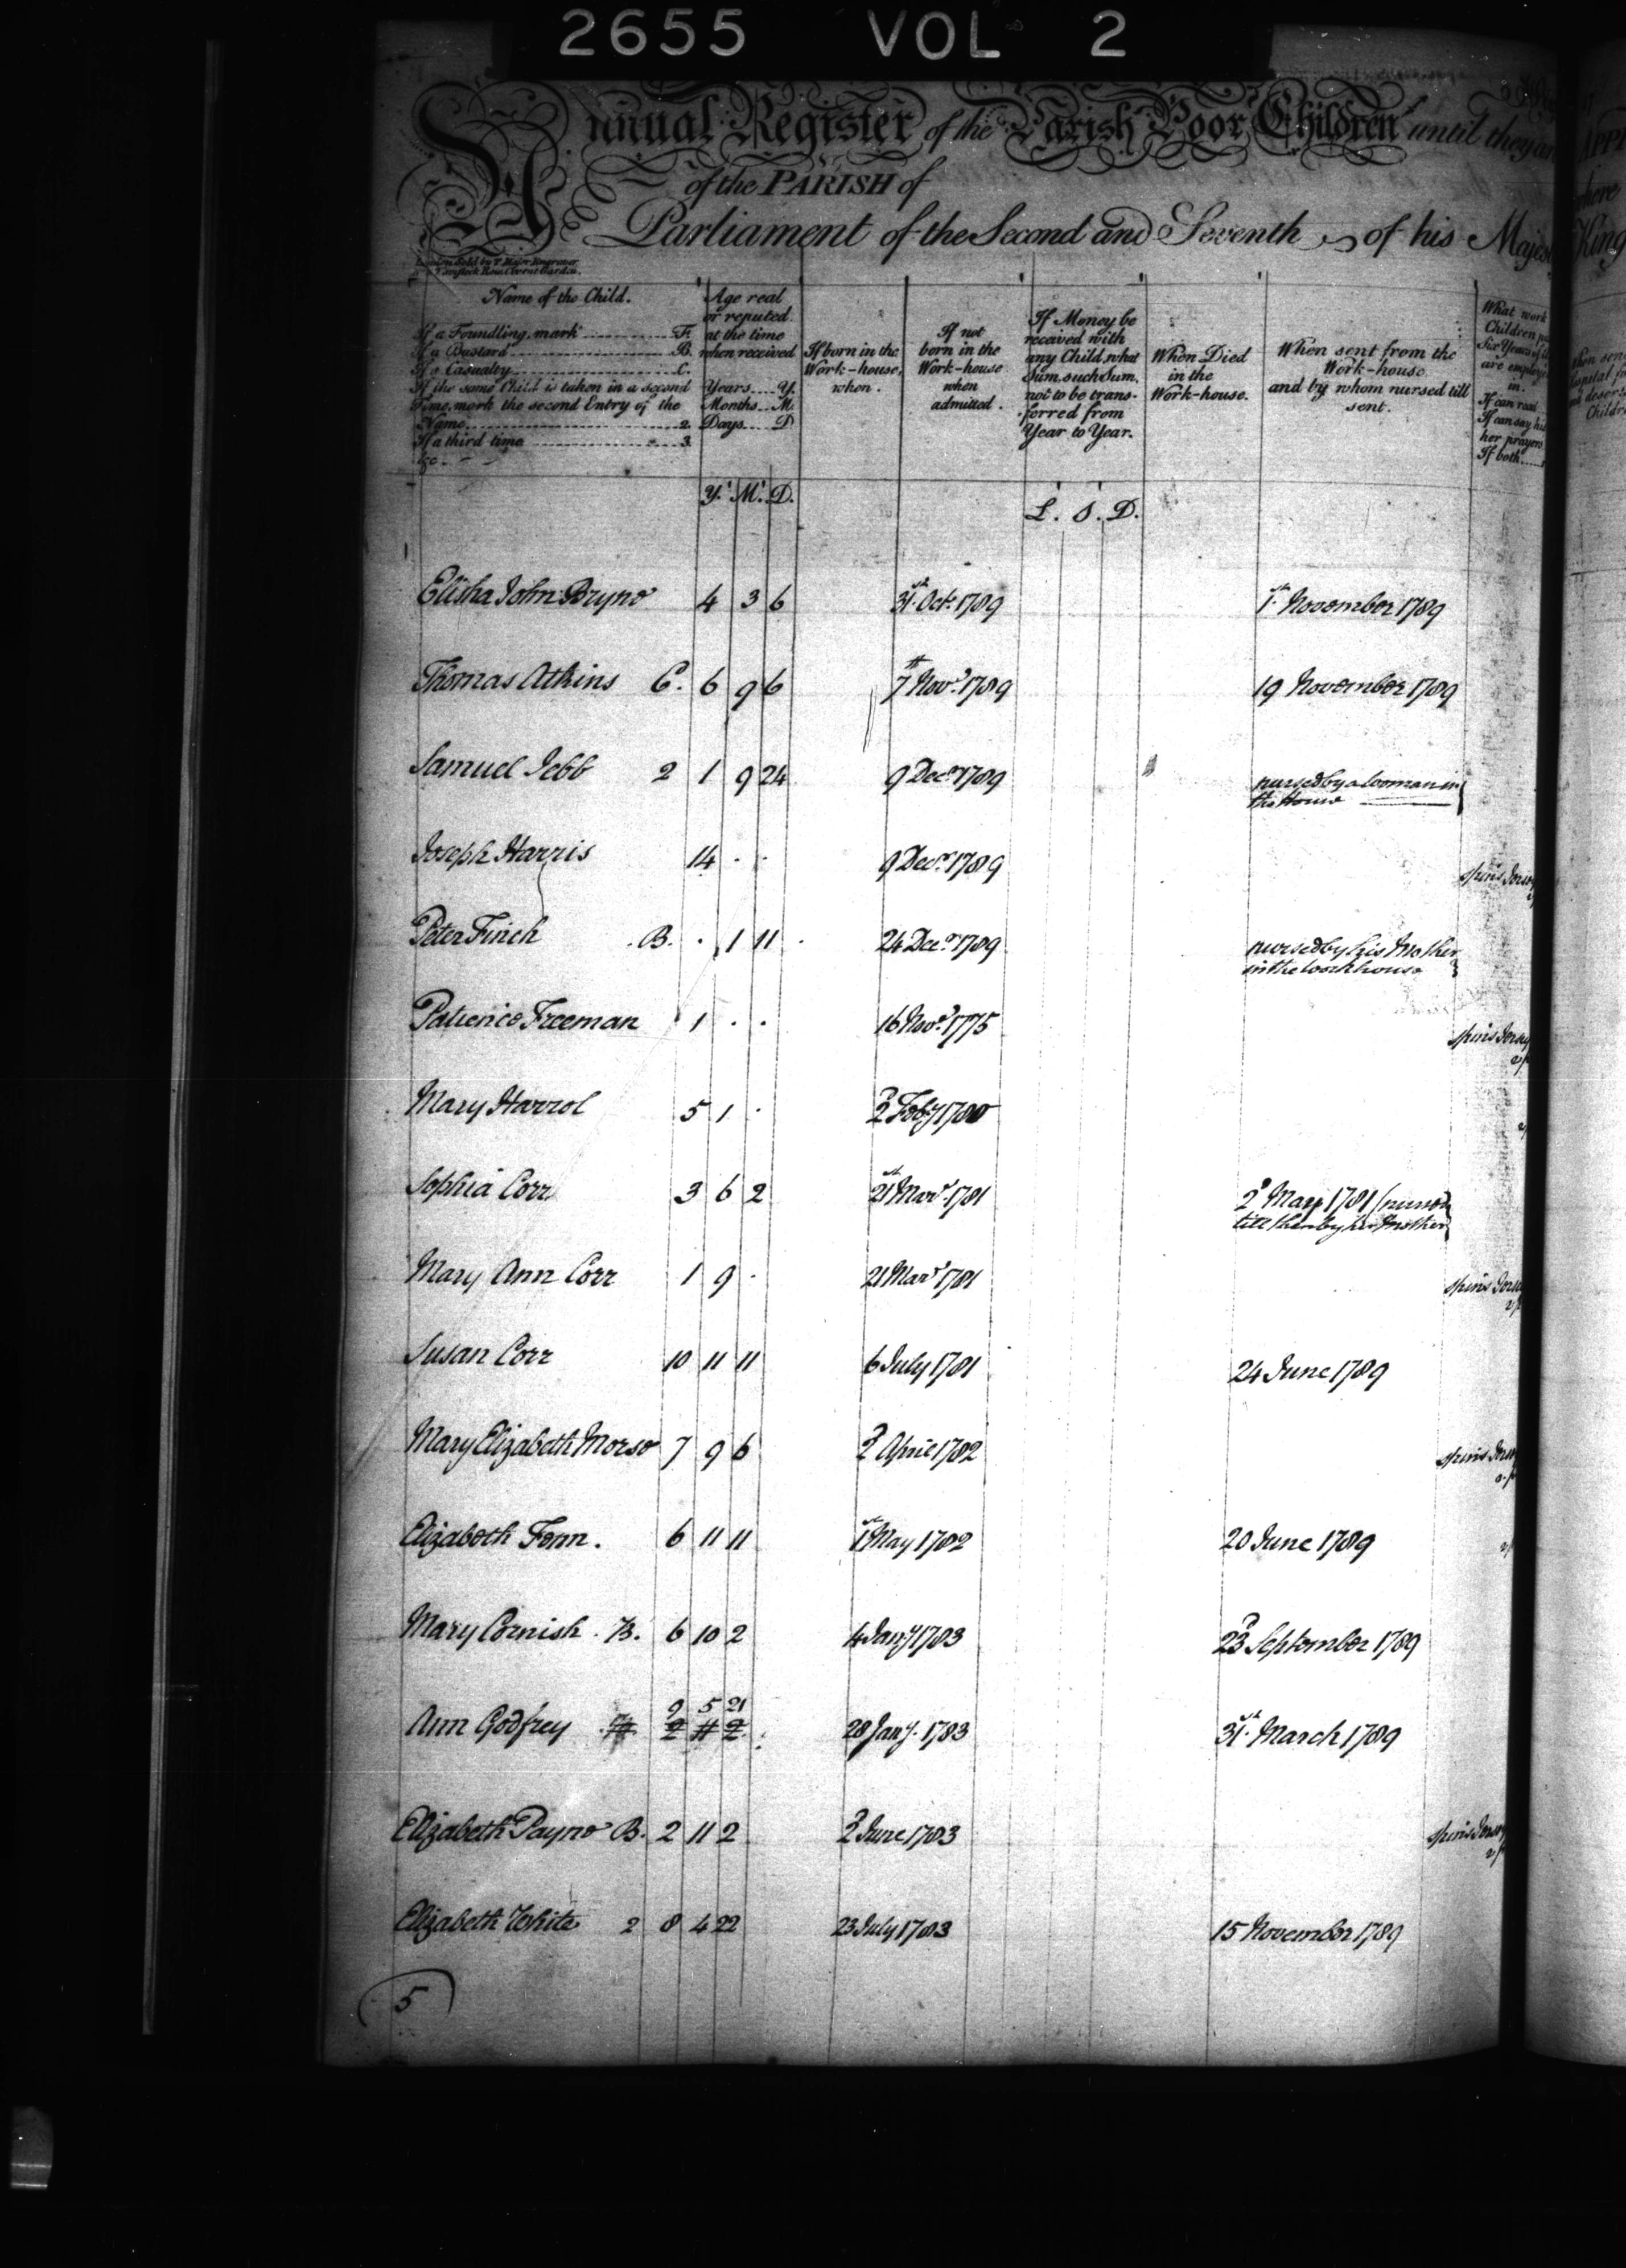 2655 VOL 2
Annual Register of the Parish Poor Children until they ar
of the PARISH of
Parliament of the Second and Seventh of his Majes
London Sold by T. Major Engraver
Tavistock Row Covent Garden.
Name of the Child.
If a Foundling, mark F.
If a Bastard B.
If a Casualty C.
If the same Child is taken in a second
Time, mark the second Entry of the
Name 2.
If a third time 3.
&c.
Age real
or reputed
at the time
when received
Years Y.
Months M.
Days D
If born in the
Work-house,
when.
If not
born in the
Work-house
when
admitted.
If Money be
received with
any Child, what
Sum, such Sum,
not to be trans-
ferred from
Year to Year.
When Died
in the
Work-house.
When sent from the
Work-house.
and by whom nursed till
sent.
What work
Children
Six Years
are employ
in.
If can read
If can say his
her prayers
If both
Y. M. D.
L. S. D.
Elisha John Bryne 4 3 6 31st Octr. 1789 1st November 1789
Thomas Atkins C. 6 9 6 7th Novr. 1789 19 November 1789
Samuel Jebb 2 1 9 24 9 Decr. 1789 nursed by a Woman in
the House
Joseph Harris 14 . . 9 Decr. 1789 spins Jersey
Peter Finch B. . 1 11 24 Decr. 1789 nursed by his Mother
in the Workhouse
Patience Freeman 1 . . 16 Novr. 1775 spins Jersey
Mary Harrol 5 1 . 2d Feby 1780
Sophia Corr 3 6 2 21st Mar. 1781 2d May 1781 (nursed
till then by her Mother
Mary Ann Corr 1 9 . 21 Mar. 1781 spins Jersey
Susan Corr 10 11 11 6 July 1781 24 June 1789
Mary Elizabeth Morse 7 9 6 2d April 1782 spins Jersey
Elizabeth Fenn. 6 11 11 1st May 1782 20 June 1789
Mary Cornish. B. 6 10 2 4 Jany 1783 23d September 1789
9 5 21
Ann Godfrey 2 11 2 28 Jany. 1783 31st March 1789
Elizabeth Payne B. 2 11 2 2d June 1783 spins Jersey
Elizabeth White 2 8 4 22 23 July 1783 15 November 1789
5